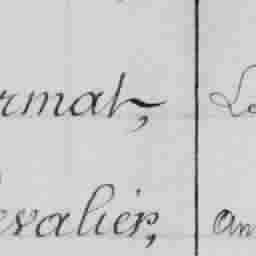 rmat, Lo
evalier, an